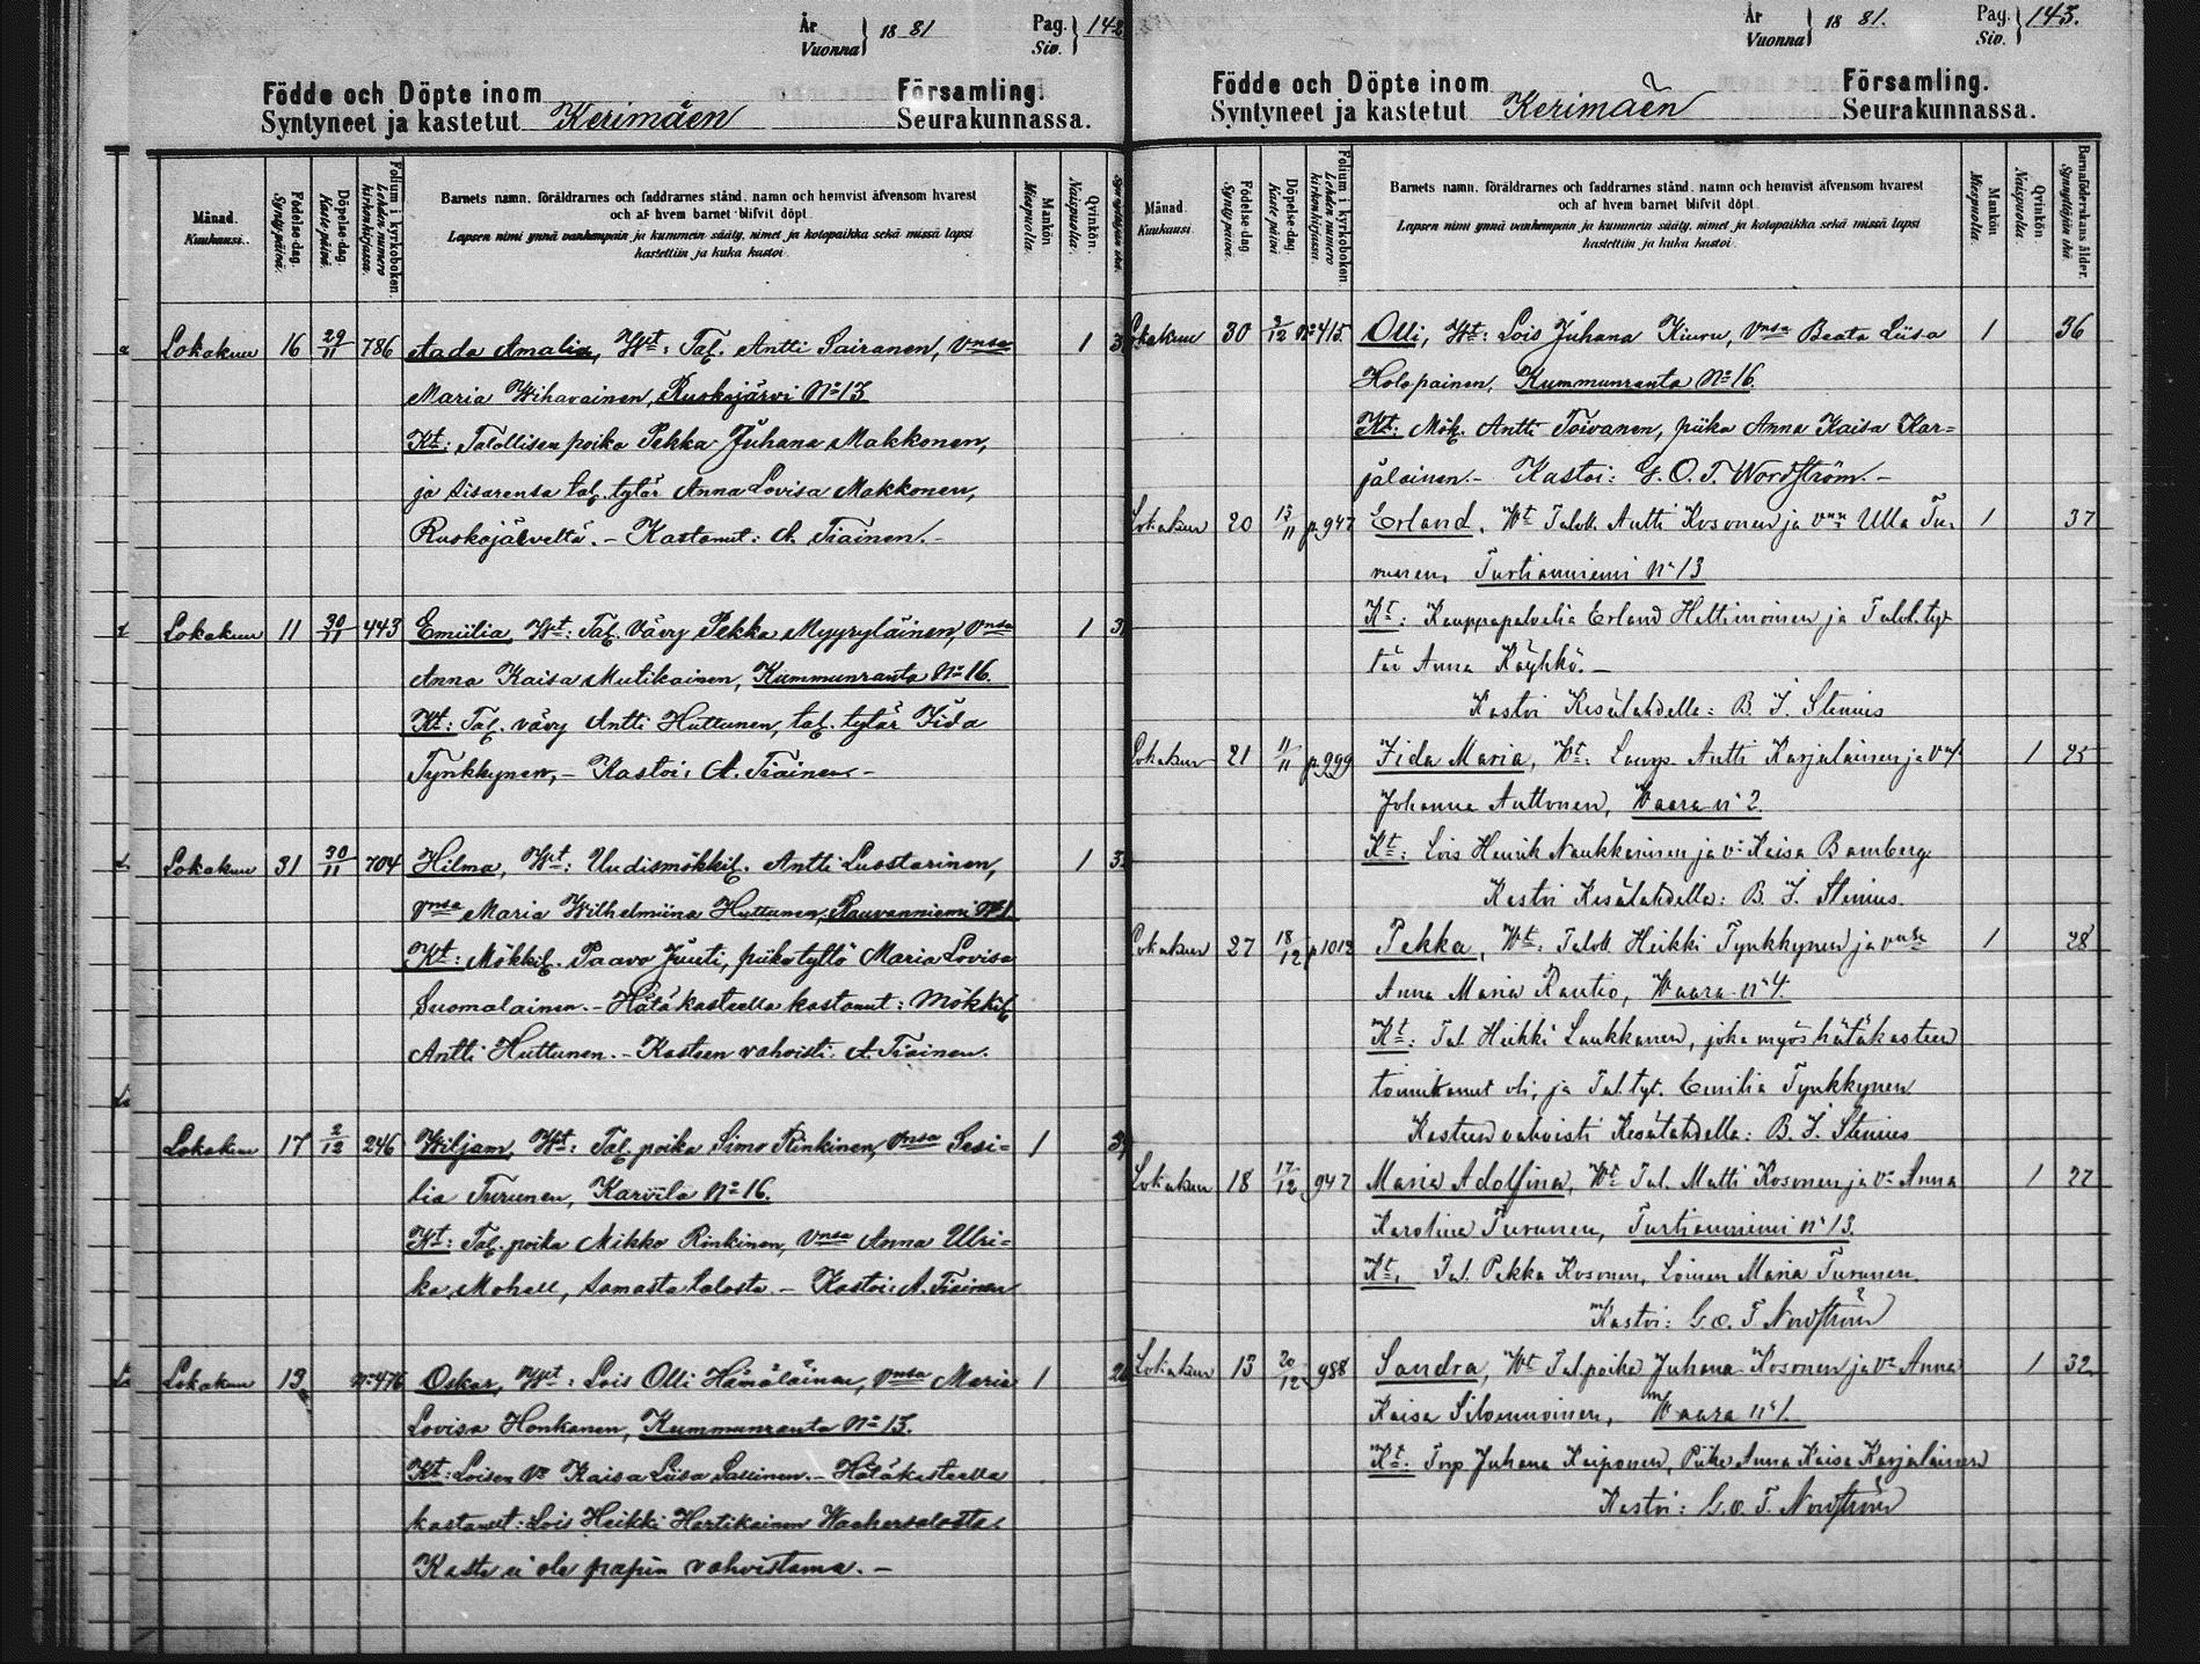 År
Vuonna } 18 81
Pag.
Siv. } 142
Födde och Döpte inom
Syntyneet ja kastetut Kerimäen
Församling.
Seurakunnassa.
Månad.
Kuukausi.
Födelse-dag.
Syntypäivä.
Döpelse-dag.
Kaste päivä.
Folium i kyrkoboken.
Lehden numero kirkonkirjassa.
Barnets namn, föräldrarnes och faddrarnes stånd, namn och hemvist äfvensom hvarest
och af hvem barnet blifvit döpt.
Lapsen nimi ynnä vanhempain ja kummein sääty, nimet ja kotopaikka sekä missä lapsi
kastettiin ja kuka kastoi.
Mankön
Miespuolta.
Qvinkön.
Naispuolta.
Lokakuu 16 29/11 786 Aada Amalia, Wt: Tal. Antti Sairanen, Vnsa 1
Maria Wihavainen, Ruokojärvi No 13
Kt: Talollisen poika Pekka Juhana Makkonen,
ja sisarensa tal. tytär Anna Lovisa Makkonen,
Ruokojärveltä. - Kastanut: A. Tiainen. -
Lokakuu 11 30/11 443 Emiilia, Wt: Tal. Vävy Pekka Myyryläinen, Vnsa 1
Anna Kaisa Mutikainen, Kummunranta No 16.
Kt: Tal. vävy Antti Huttunen, tal. tytär Iida
Tynkkynen, - Kastoi: A. Tiainen -
Lokakuu 31 30/11 704 Hilma, Wt: Uudismökkil. Antti Luostarinen, 1
Vnsa Maria Wilhelmiina Huttunen, Rauvanniemi No 1
Kt: Mökkil. Paavo Juuti, piikatyttö Maria Lovisa
Suomalainen. - Hätäkasteella kastanut: Mökkil.
Antti Huttunen. - Kasteen vahvisti: A. Tiainen.
Lokakuu 17 2/12 246 Wiljam, Wt: Tal. poika Simo Rinkinen, Vnsa Sesi= 1
lia Turunen, Karvila No 16.
Kt: Tal. poika Mikko Rinkinen, Vnsa Anna Ulri=
ka Mohell, samasta talosta. - Kastoi: A. Tiainen
Lokakuu 13 No 476 Oskar, Wt: Lois Olli Hämäläinen, Vnsa Maria 1
Lovisa Honkanen, Kummunranta No 13.
Kt: Loisen Vo Kaisa Liisa Sallinen. - Hätäkasteella
kastanut: Lois Heikki Hartikainen Waahersalosta.
Kaste ei ole papin vahvistama. -
År
Vuonna } 18 81.
Pag.
Siv. } 143.
Födde och Döpte inom
Syntyneet ja kastetut Kerimäen
Församling.
Seurakunnassa.
Månad.
Kuukausi.
Födelse-dag
Syntypäivä.
Döpelse-dag.
Kaste päivä
Folium i kyrkoboken
Lehden numero kirkonkirjassa.
Barnets namn, föräldrarnes och faddrarnes stånd, namn och hemvist äfvensom hvarest
och af hvem barnet blifvit döpt.
Lapsen nimi ynnä vanhempain ja kummein sääty, nimet ja kotopaikka sekä missä lapsi
kastettiin ja kuka kastoi.
Mankön
Miespuolta.
Qvinkön
Naispuolta.
Barnaföderskans ålder.
Synnyttäjän ikä.
Lokakuu 30 2/12 No 415. Olli, Wt: Lois Juhana Kiuru, Vnsa Beata Liisa 1 36
Holopainen, Kummunranta No 16.
Kt: Mök. Antti Toivanen, piika Anna Kaisa Kar=
jalainen. - Kastoi: G. O. T. Nordström. -
Lokakuu 20 13/11 p. 947 Erland, Wt Taloll. Antti Kosonen ja Vnsa Ulla Tu- 1 37
runen, Turtianniemi No 13
Kt: Kauppapalvelia Erland Heltimoinen ja Talol. tyt
tär Anna Käyhkö. -
Kastoi Kesälahdella: B. J. Stenius
Lokakuu 21 11/11 p. 999 Iida Maria, Wt: Lamp. Antti Karjalainen ja V 1 25
Johanna Auttonen, Waara No 2.
Kt: Lois Henrik Naukkarinen ja Vo Kaisa Bamberg
Kastoi Kesälahdella: B. J. Stenius.
Lokakuu 27 18/12 p 1012 Pekka, Wt: Taloll Heikki Tynkkynen ja Vnsa 1 28
Anna Maria Rautio, Waara No 4.
Kt: Tal. Heikki Laukkanen, joka myös hätäkasteen
toimittanut oli, ja Tal. tyt. Emilia Tynkkynen
Kasteen vahvisti Kesälahdella: B. J. Stenius
Lokakuu 18 17/12 947 Maria Adolfina, Wt Tal. Matti Kosonen ja Vo Anna 1 22
Karolina Turunen, Turtianniemi No 13.
Kt, Tal. Pekka Kosonen, Loinen Maria Turunen.
Kastoi: G. O. T. Nordström
Lokakuu 13 20/12 988 Sandra, Wt Tal. poika Juhana Kosonen ja Vo Anna 1 32
Kaisa Silvennoinen, Waara No 1.
Kt: Torp Juhana Kaiponen, Piika Anna Kaisa Karjalainen
Kastoi: G. O. T. Nordström